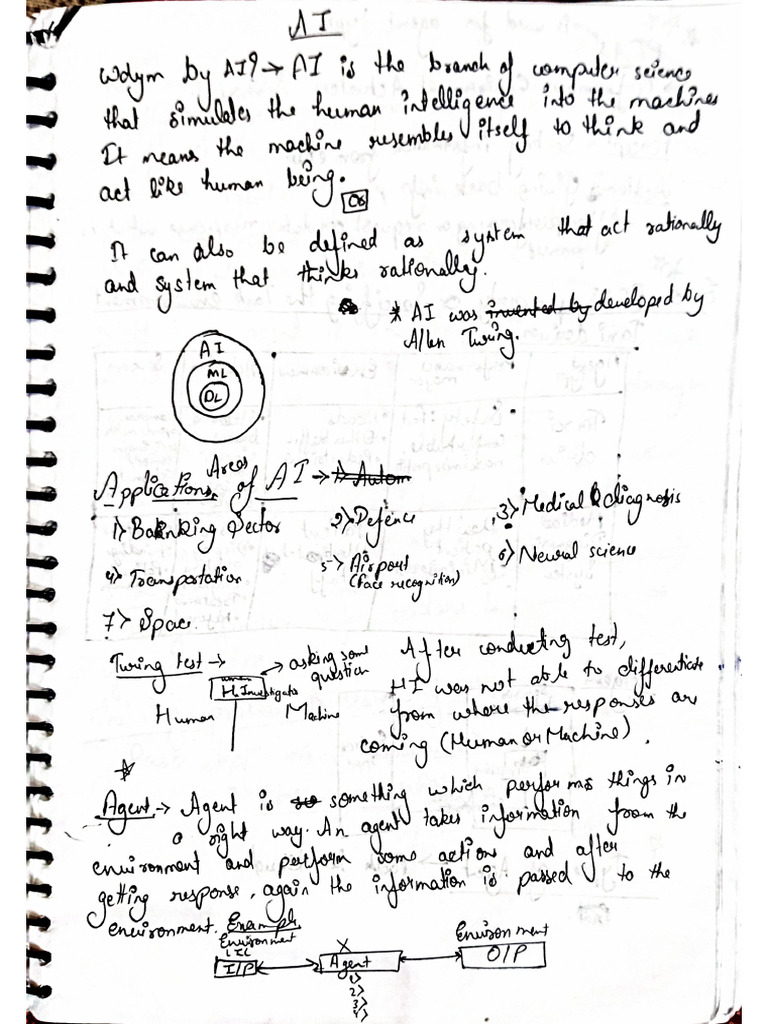 AI
Wdym by AI? → AI is the branch of computer science
that simulates the human intelligence into the machines
It means the machine resembles itself to think and
act like human being.
OR
It can also be defined as system that act rationally
and system that thinks rationally.
* AI was invented by developed by
Allen Turing.
AI
ML
DL
Applications Areas of AI → 1) Autom
1) Banking Sector 2) Defence 3) Medical & diagnosis
4) Transportation 5) Airport (face recognition) 6) Neural science
7) Space
Turing test →
H.Investigator → asking some question
Human Machine
After conducting test,
HI was not able to differentiate
from where the responses are
coming (Human or Machine).
Agent → Agent is something which performs things in
a right way. An agent takes information from the
environment and perform some actions and after
getting response, again the information is passed to the
environment. Example
Environment
I/P
X
Agent
1>
2>
3>
4>
Environment
O/P